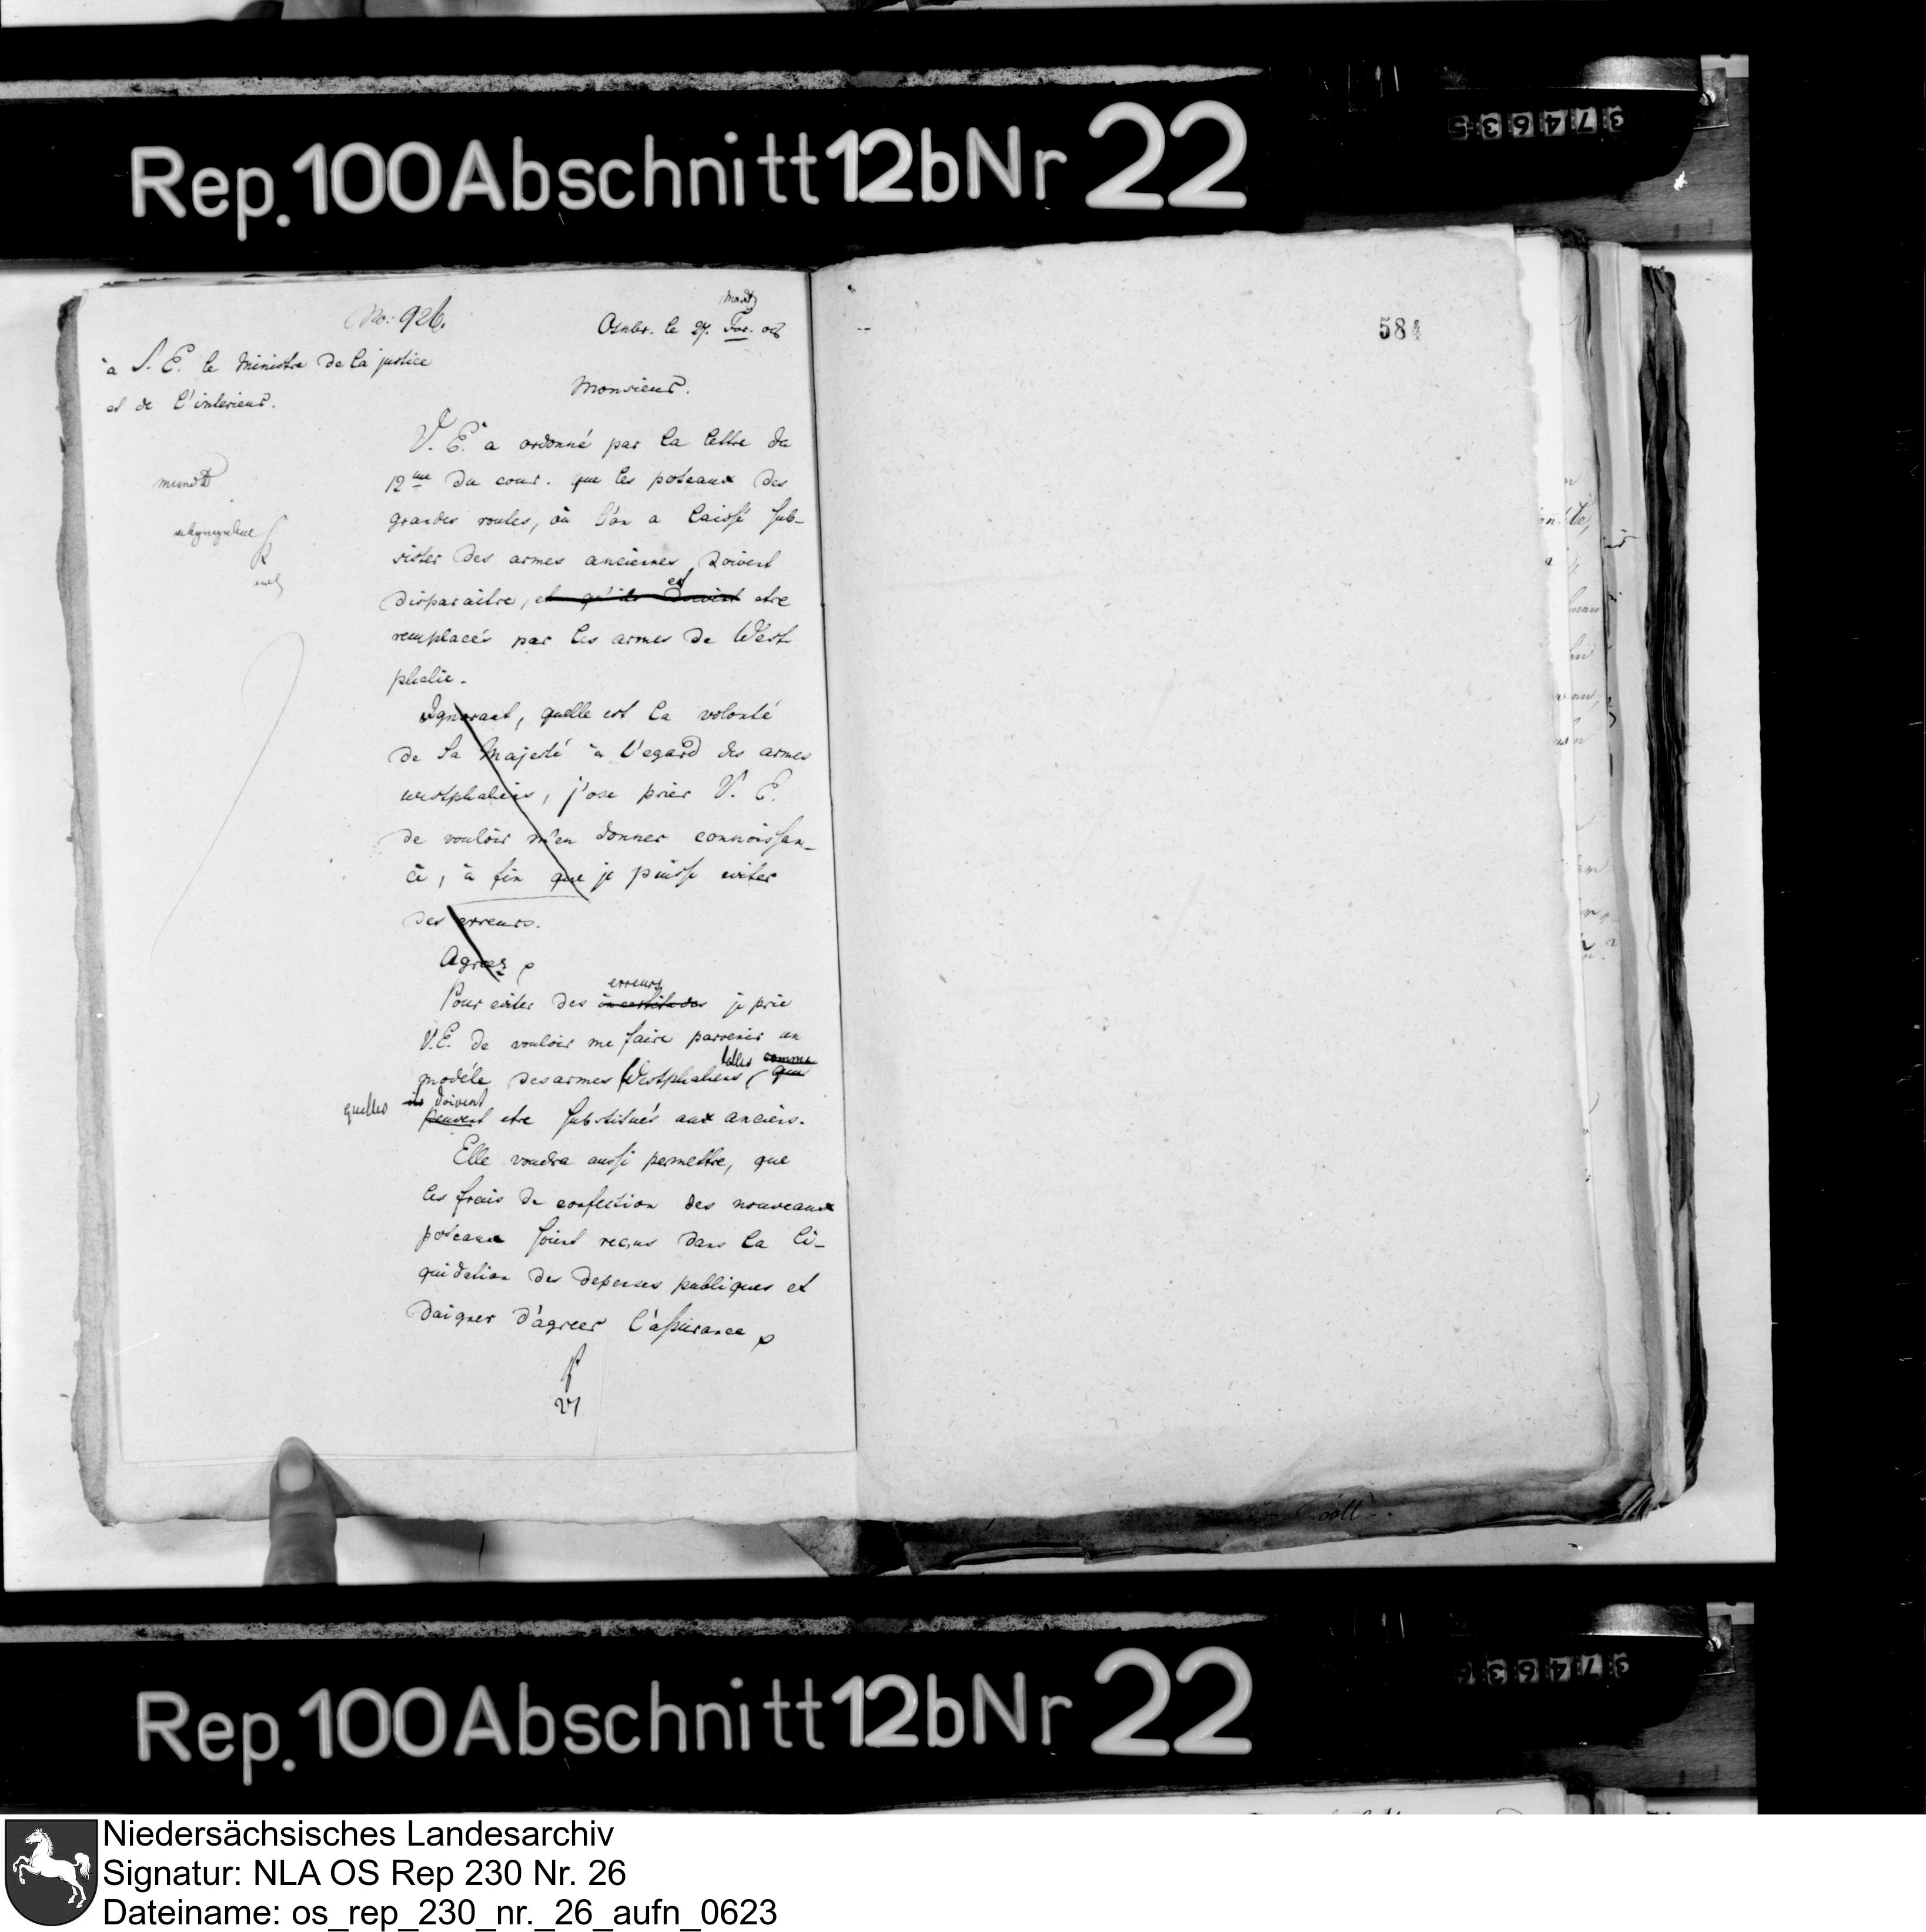 Rep. 100 Abschnitt 12b Nr 22
374635
No: 926.
Osnbr. le 27. Fer. 08
à S. E. le Ministre de la justice
et de l'interieur.
Monsieur.
584
V. E. a ordonné par la lettre du
12me du cour. que les poteaux des
grandes routes, où l'on a laissé sub-
sister des armes anciennes doivent
disparaitre, et qu'ils doivent etre
et
remplacés par les armes de West
phalie.
Ignorant, quelle est la volonté
de Sa Majesté à l'egard des armes
westphaliens, j'ose prier V. E.
de vouloir m'en donner connoissan-
ce, à fin que je puisse eviter
des erreurs.
Agréez
erreurs
Pour eviter des incertitudes je prie
V. E. de vouloir me faire parvenir un
telles comme
modéle des armes Westphaliens, que
quelles ils doivent
peuvent etre substitués aux anciens.
Elle voudra aussi permettre, que
les frais de confection des nouveaux
poteaux soient reçus dans la li-
quidation des depenses publiques et
daigner d'agreer l'assurance
Rep. 100 Abschnitt 12b Nr 22
374636
Niedersächsisches Landesarchiv
Signatur: NLA OS Rep 230 Nr. 26
Dateiname: os_rep_230_nr._26_aufn_0623